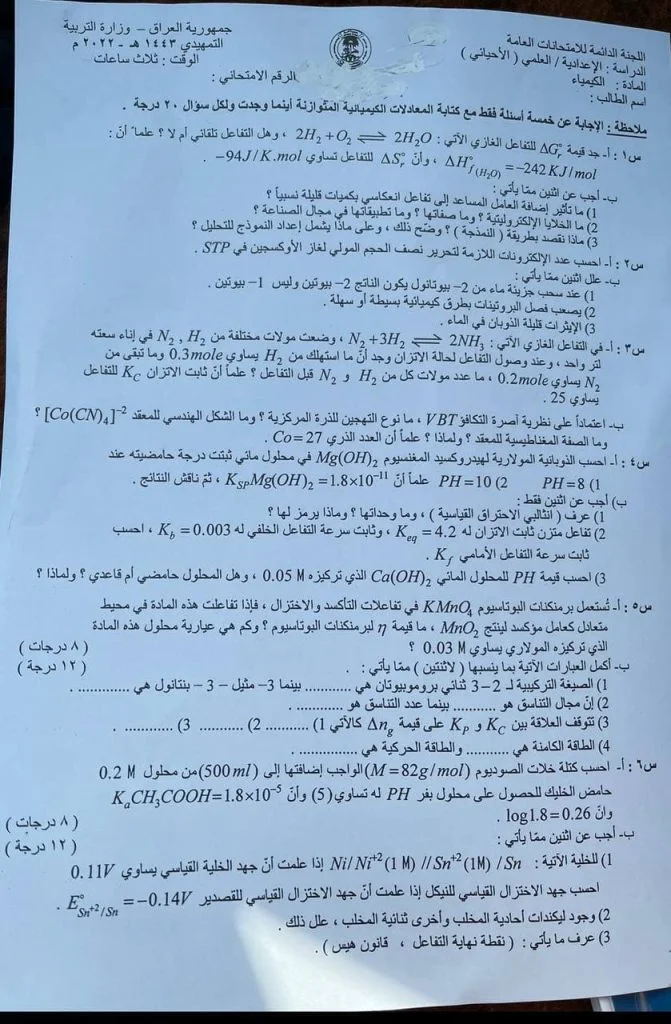 جمهورية العراق - وزارة التربية
التمهيدي ١٤٤٣ هـ - ٢٠٢٢ م
الوقت : ثلاث ساعات
الرقم الامتحاني :
اللجنة الدائمة للامتحانات العامة
الدراسة : الإعدادية / العلمي ( الأحيائي )
المادة : الكيمياء
اسم الطالب :
ملاحظة : الإجابة عن خمسة أسئلة فقط مع كتابة المعادلات الكيميائية المتوازنة أينما وجدت ولكل سؤال ٢٠ درجة .
س١ : أ- جد قيمة ΔG°r للتفاعل الغازي الآتي : 2H₂ + O₂ ⇌ 2H₂O ، وهل التفاعل تلقائي أم لا ؟ علماً أنّ :
ΔH°f(H₂O) = -242 KJ/mol ، وأنّ ΔS°r للتفاعل تساوي -94J/K.mol .
ب- أجب عن اثنين ممّا يأتي :
1) ما تأثير إضافة العامل المساعد إلى تفاعل انعكاسي بكميات قليلة نسبياً ؟
2) ما الخلايا الإلكتروليتية ؟ وما صفاتها ؟ وما تطبيقاتها في مجال الصناعة ؟
3) ماذا نقصد بطريقة ( النمذجة ) ؟ وضّح ذلك ، وعلى ماذا يشمل إعداد النموذج للتحليل ؟
س٢ : أ- احسب عدد الإلكترونات اللازمة لتحرير نصف الحجم المولي لغاز الأوكسجين في STP .
ب- علل اثنين ممّا يأتي :
1) عند سحب جزيئة ماء من 2- بيوتانول يكون الناتج 2- بيوتين وليس 1- بيوتين .
2) يصعب فصل البروتينات بطرق كيميائية بسيطة أو سهلة .
3) الإيثرات قليلة الذوبان في الماء .
س٣ : أ- في التفاعل الغازي الآتي : N₂ + 3H₂ ⇌ 2NH₃ ، وضعت مولات مختلفة من N₂ , H₂ في إناء سعته
لتر واحد ، وعند وصول التفاعل لحالة الاتزان وجد أنّ ما استهلك من H₂ يساوي 0.3mole وما تبقى من
N₂ يساوي 0.2mole ، ما عدد مولات كل من H₂ و N₂ قبل التفاعل ؟ علماً أنّ ثابت الاتزان KC للتفاعل
يساوي 25 .
ب- اعتماداً على نظرية أصرة التكافؤ VBT ، ما نوع التهجين للذرة المركزية ؟ وما الشكل الهندسي للمعقد [Co(CN)₄]⁻² ؟
وما الصفة المغناطيسية للمعقد ؟ ولماذا ؟ علماً أن العدد الذري Co=27 .
س٤ : أ- احسب الذوبانية المولارية لهيدروكسيد المغنسيوم Mg(OH)₂ في محلول مائي ثبتت درجة حامضيته عند
1) PH=8   2) PH=10 علماً أنّ KSP Mg(OH)₂ =1.8×10⁻¹¹ ، ثمّ ناقش النتائج .
ب) أجب عن اثنين فقط :
1) عرف ( انثالبي الاحتراق القياسية ) ، وما وحداتها ؟ وماذا يرمز لها ؟
2) تفاعل متزن ثابت الاتزان له Keq = 4.2 ، وثابت سرعة التفاعل الخلفي له Kb = 0.003 ، احسب
ثابت سرعة التفاعل الأمامي Kf .
3) احسب قيمة PH للمحلول المائي Ca(OH)₂ الذي تركيزه 0.05 M ، وهل المحلول حامضي أم قاعدي ؟ ولماذا ؟
س٥ : أ- تُستعمل برمنكنات البوتاسيوم KMnO₄ في تفاعلات التأكسد والاختزال ، فإذا تفاعلت هذه المادة في محيط
متعادل كعامل مؤكسد لينتج MnO₂ ، ما قيمة η لبرمنكنات البوتاسيوم ؟ وكم هي عيارية محلول هذه المادة
الذي تركيزه المولاري يساوي 0.03 M ؟ ( ٨ درجات )
ب- أكمل العبارات الآتية بما يناسبها ( لاثنتين ) ممّا يأتي : . ( ١٢ درجة )
1) الصيغة التركيبية لـ 2-3 ثنائي بروموبيوتان هي ............ بينما 3- مثيل - 3 - بنتانول هي ............ .
2) إنّ مجال التناسق هو ............ بينما عدد التناسق هو ............ .
3) تتوقف العلاقة بين KC و KP على قيمة Δng كالآتي 1) ............ 2) ............ 3) ............ .
4) الطاقة الكامنة هي ............ والطاقة الحركية هي ............ .
س٦ : أ- احسب كتلة خلات الصوديوم (M=82g/mol) الواجب إضافتها إلى (500ml) من محلول 0.2 M
حامض الخليك للحصول على محلول بفر PH له تساوي (5) وأنّ KaCH₃COOH=1.8×10⁻⁵
وانّ log1.8=0.26 . ( ٨ درجات )
ب- أجب عن اثنين ممّا يأتي : ( ١٢ درجة )
1) للخلية الآتية : Ni/Ni⁺²(1 M) //Sn⁺²(1M) /Sn إذا علمت أنّ جهد الخلية القياسي يساوي 0.11V
احسب جهد الاختزال القياسي للنيكل إذا علمت أنّ جهد الاختزال القياسي للقصدير E°Sn⁺²/Sn = -0.14V .
2) وجود ليكندات أحادية المخلب وأخرى ثنائية المخلب ، علل ذلك .
3) عرف ما يأتي : ( نقطة نهاية التفاعل ، قانون هيس ) .